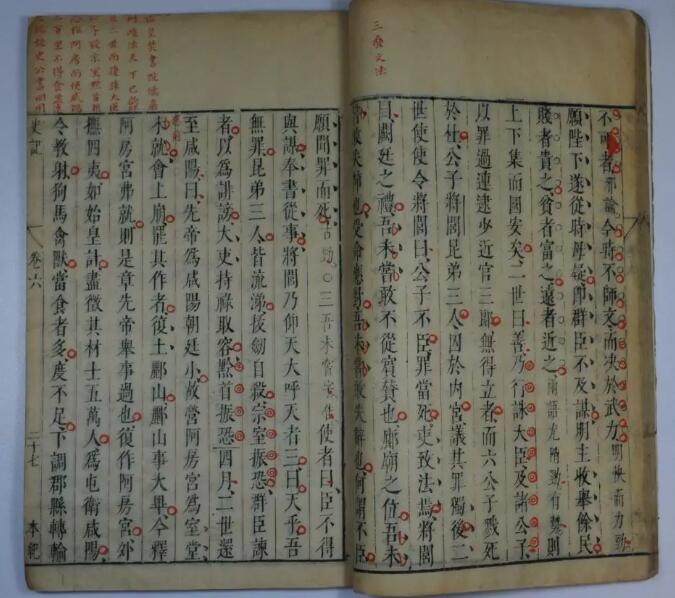 三發文法
不可者邪論今時不師文而决於武力明快而力勁
願陛下遂從時毋疑即群臣不及謀明主收舉餘民
賤者貴之貧者富之遠者近之則
上下集而國安矣二世曰善乃行誅大臣及諸公子
以罪過連逮少近官三郎無得立者而六公子戮死
於杜公子將閭昆弟三人囚於内宮議其罪獨後二
世使使令將閭曰公子不臣罪當死吏致法焉將閭
曰闕廷之禮吾未嘗敢不從賓贊也廊廟之位吾未
嘗敢失節也受命應對吾未嘗敢失辭也何謂不臣
願聞罪而死古勁○三吾未嘗使者曰臣不得
與謀奉書從事將閭乃仰天大呼天者三曰天乎吾
無罪昆弟三人皆流涕拔劍自殺宗室振恐群臣諫
者以爲誹謗大吏持祿取容黔首振恐四月二世還
至咸陽曰先帝爲咸陽朝廷小故營阿房宮爲室堂
未就會上崩罷其作者復土酈山酈山事大畢今釋
阿房宮弗就則是章先帝舉事過也復作阿房宮外
撫四夷如始皇計盡徵其材士五萬人爲屯衛咸陽
令教射狗馬禽獸當食者多度不足下調郡縣轉輸
史記 卷六 二十七 本紀